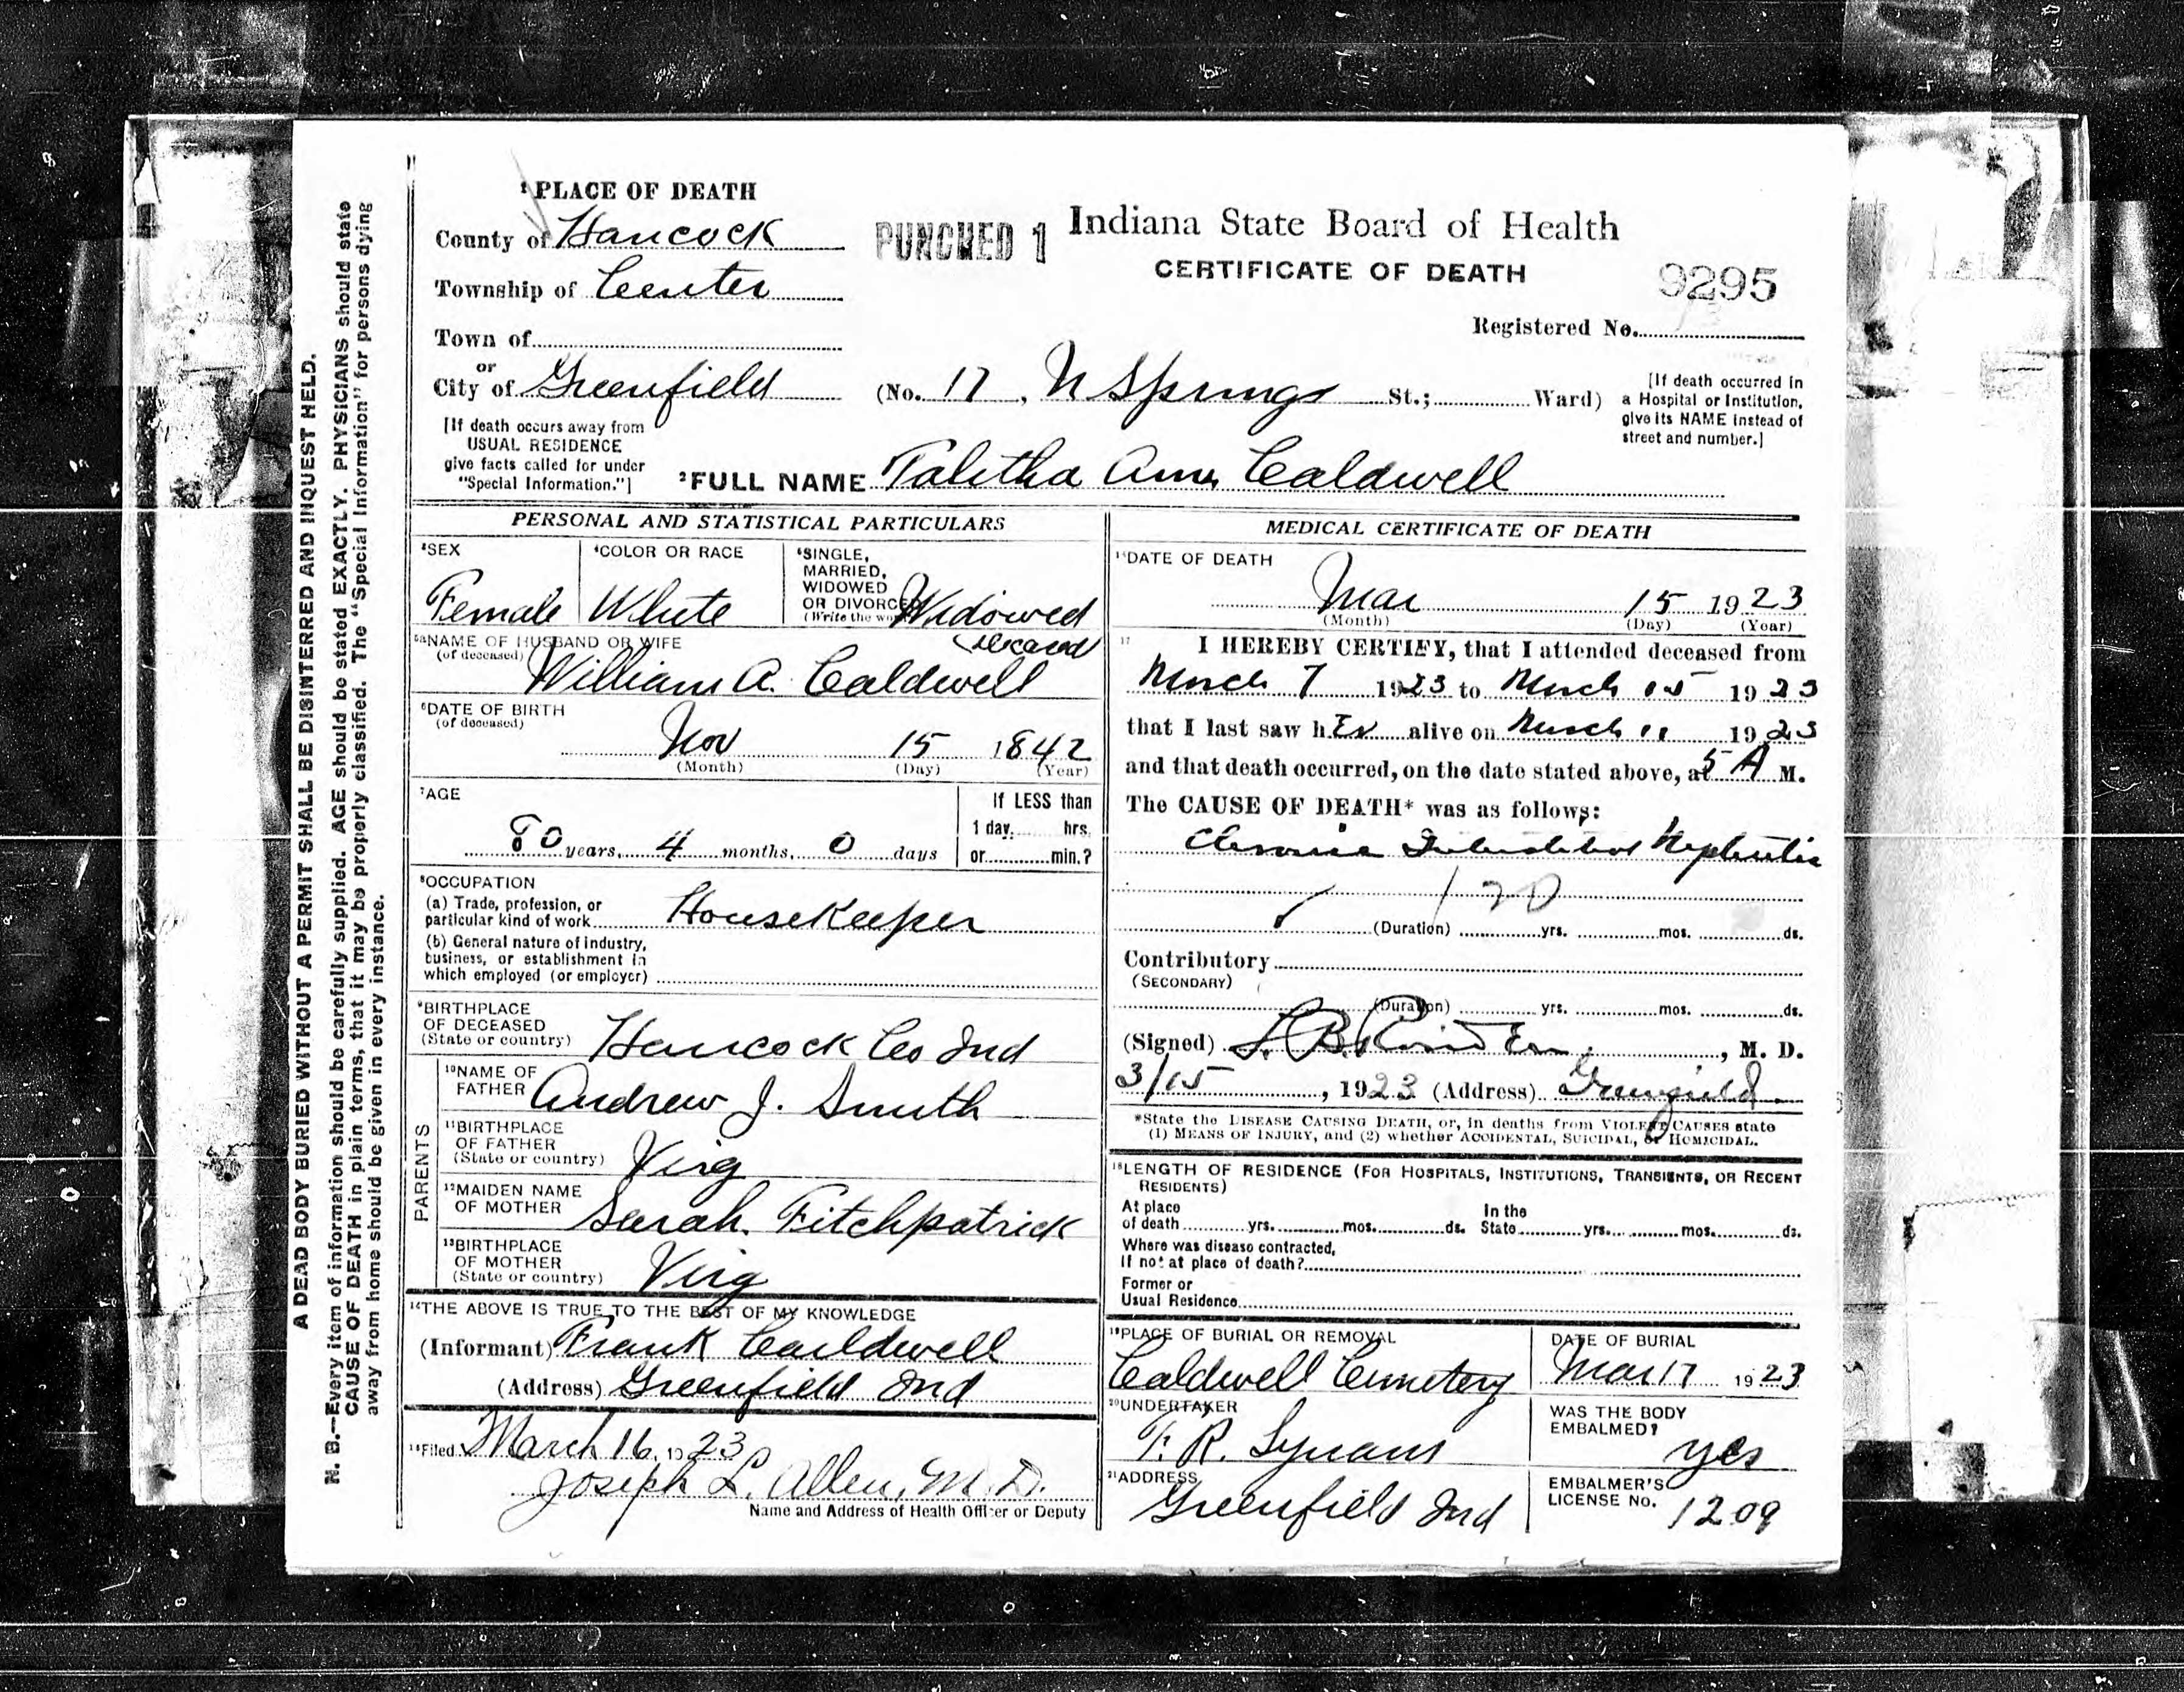 A DEAD BODY BURIED WITHOUT A PERMIT SHALL BE DISINTERRED AND INQUEST HELD.
N. B.—Every item of information should be carefully supplied. AGE should be stated EXACTLY. PHYSICIANS should state
CAUSE OF DEATH in plain terms, that it may be properly classified. The "Special Information" for persons dying
away from home should be given in every instance.
1 PLACE OF DEATH
County of Hancock
Township of Center
Town of
or
City of Greenfield
[If death occurs away from
USUAL RESIDENCE
give facts called for under
"Special Information."]
PUNCHED 1
Indiana State Board of Health
CERTIFICATE OF DEATH
9295
Registered No.
(No. 17, N Springs St.; Ward)
[If death occurred in
a Hospital or Institution,
give its NAME instead of
street and number.]
2 FULL NAME Talitha Ann Caldwell
PERSONAL AND STATISTICAL PARTICULARS
3 SEX
Female
4 COLOR OR RACE
White
5 SINGLE,
MARRIED,
WIDOWED
OR DIVORCED
(Write the word)
Widowed
5a NAME OF HUSBAND OR WIFE
(of deceased)
deceased
William A. Caldwell
6 DATE OF BIRTH
(of deceased)
Nov 15 1842
(Month) (Day) (Year)
7 AGE
80 years, 4 months, 0 days
If LESS than
1 day, hrs.
or min.?
8 OCCUPATION
(a) Trade, profession, or
particular kind of work Housekeeper
(b) General nature of industry,
business, or establishment in
which employed (or employer)
9 BIRTHPLACE
OF DECEASED
(State or country) Hancock Co Ind
PARENTS
10 NAME OF
FATHER Andrew J. Smith
11 BIRTHPLACE
OF FATHER
(State or country) Virg
12 MAIDEN NAME
OF MOTHER Sarah Fitchpatrick
13 BIRTHPLACE
OF MOTHER
(State or country) Virg
14 THE ABOVE IS TRUE TO THE BEST OF MY KNOWLEDGE
(Informant) Frank Caldwell
(Address) Greenfield Ind
15 Filed March 16, 1923
Joseph L. Allen, M.D.
Name and Address of Health Officer or Deputy
MEDICAL CERTIFICATE OF DEATH
16 DATE OF DEATH
Mar 15 1923
(Month) (Day) (Year)
17 I HEREBY CERTIFY, that I attended deceased from
March 7 1923 to March 15 1923
that I last saw h Er alive on March 11 1923
and that death occurred, on the date stated above, at 5 A M.
The CAUSE OF DEATH* was as follows:
Chronic Interstitial Nephritis
120
(Duration) yrs. mos. ds.
Contributory
(SECONDARY)
(Duration) yrs. mos. ds.
(Signed) , M. D.
3/15, 1923 (Address) Greenfield
*State the DISEASE CAUSING DEATH, or, in deaths from VIOLENT CAUSES state
(1) MEANS OF INJURY, and (2) whether ACCIDENTAL, SUICIDAL, or HOMICIDAL.
18 LENGTH OF RESIDENCE (FOR HOSPITALS, INSTITUTIONS, TRANSIENTS, OR RECENT
RESIDENTS)
At place
of death yrs. mos. ds.
In the
State yrs. mos. ds.
Where was disease contracted,
If not at place of death?
Former or
Usual Residence
19 PLACE OF BURIAL OR REMOVAL
Caldwell Cemetery
DATE OF BURIAL
Mar 17 1923
20 UNDERTAKER
WAS THE BODY
EMBALMED?
yes
21 ADDRESS
Greenfield Ind
EMBALMER'S
LICENSE No. 1209